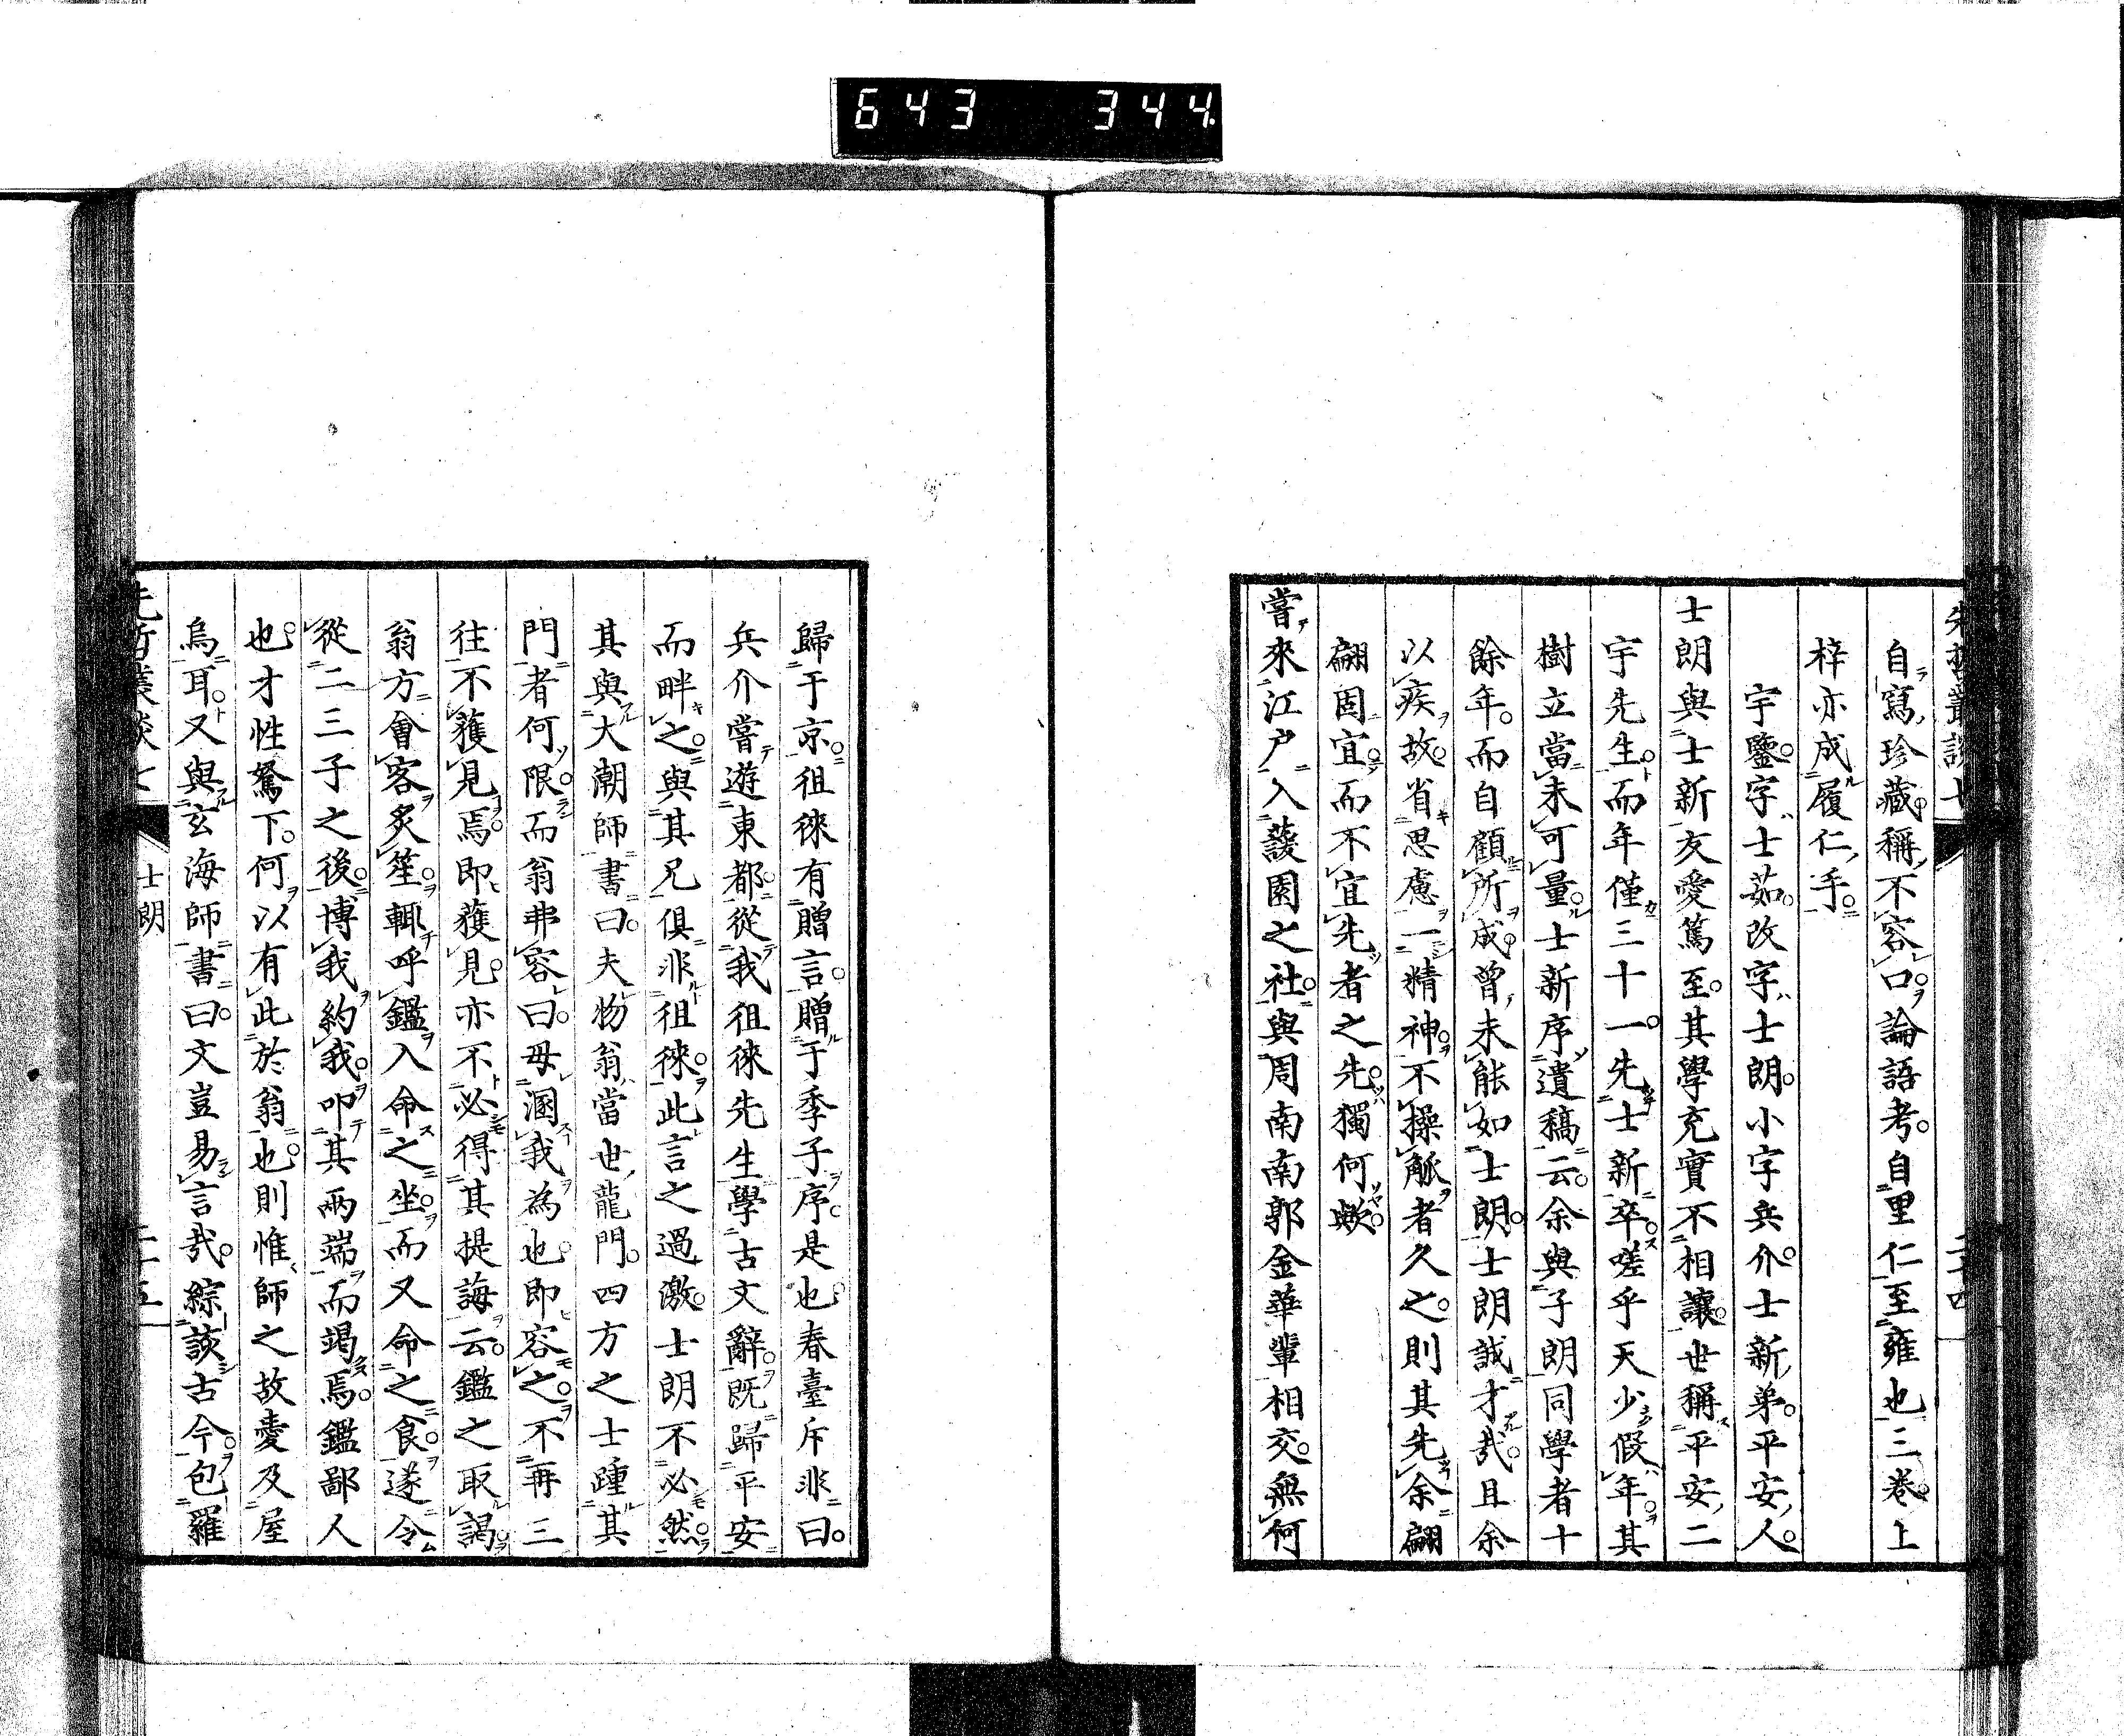 643 344.
自寫珍藏稱不容口論語考自里仁至雍也三卷上
梓亦成履仁手
宇鑒字士茹改字士朗小字兵介士新弟平安人
士朗與士新友愛篤至其學充實不相讓世稱平安二
宇先生而年僅三十一先士新卒嗟乎天少假年其
樹立當未可量士新序遺稿云余與子朗同學者十
餘年而自顧所成曾未能如士朗士朗誠才哉且余
以疾故省思慮一精神不操觚者久之則其先余翩
翩固宜而不宜先者之先獨何歟
嘗來江戶入蘐園之社與周南南郭金華輩相交無何
歸于京徂徠有贈言贈于季子序是也春臺斥非曰
兵介嘗遊東都從我徂徠先生學古文辭既歸平安
而畔之與其兄俱非徂徠此言之過激士朗不必然
其與大潮師書曰夫物翁當世龍門四方之士踵其
門者何限而翁弗容曰毋溷我為也即容之不再三
往不獲見焉即獲見亦不必得其提誨云鑑之取謁
翁方會客炙笙輒呼鑑入命之坐而又命之食遂令
從二三子之後博我約我叩其兩端而竭焉鑑鄙人
也才性駑下何以有此於翁也則惟師之故愛及屋
烏耳又與玄海師書曰文豈易言哉綜該古今包羅
士朗